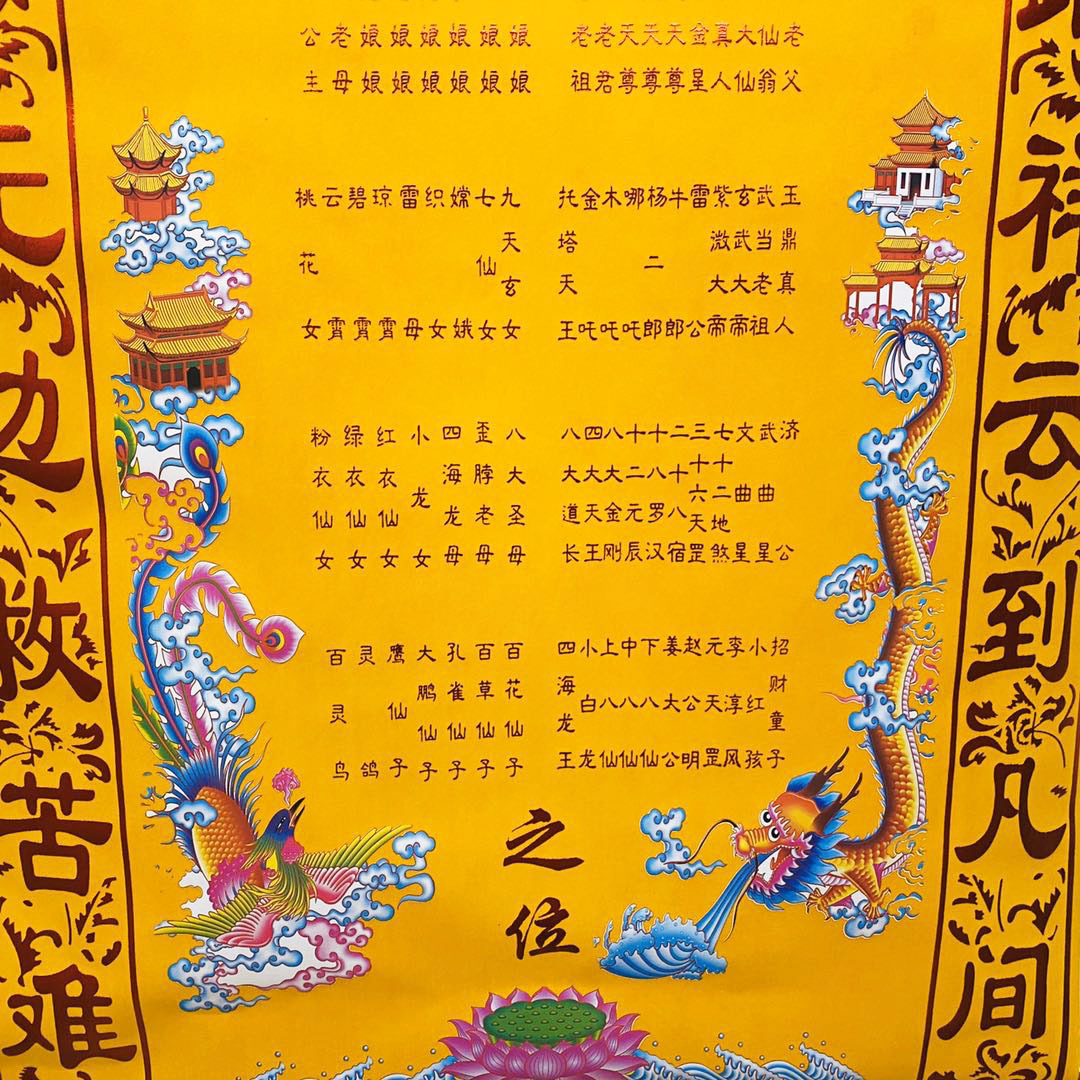 祥云到凡间
老父
仙翁
大仙
真人
金星
天尊
天尊
天尊
老君
老祖
娘娘
娘娘
娘娘
娘娘
娘娘
娘娘
老母
公主
玉鼎真人
武当老祖
玄武大帝
紫溦大帝
雷公
牛郎
杨二郎
哪吒
木吒
金吒
托塔天王
九天玄女
七仙女
嫦娥
织女
雷母
琼霄
碧霄
云霄
桃花女
济公
武曲星
文曲星
七十二地煞
三十六天罡
二十八宿
十八罗汉
十二元辰
八大金刚
四大天王
八大道长
八大圣母
歪脖老母
四海龙母
小龙女
红衣仙女
绿衣仙女
粉衣仙女
招财童子
小红孩
李淳风
元天罡
赵公明
姜大公
下八仙
中八仙
上八仙
小白龙
四海龙王
百花仙子
百草仙子
孔雀仙子
大鹏仙子
鹰仙子
灵鸽
百灵鸟
之位
无边救苦难